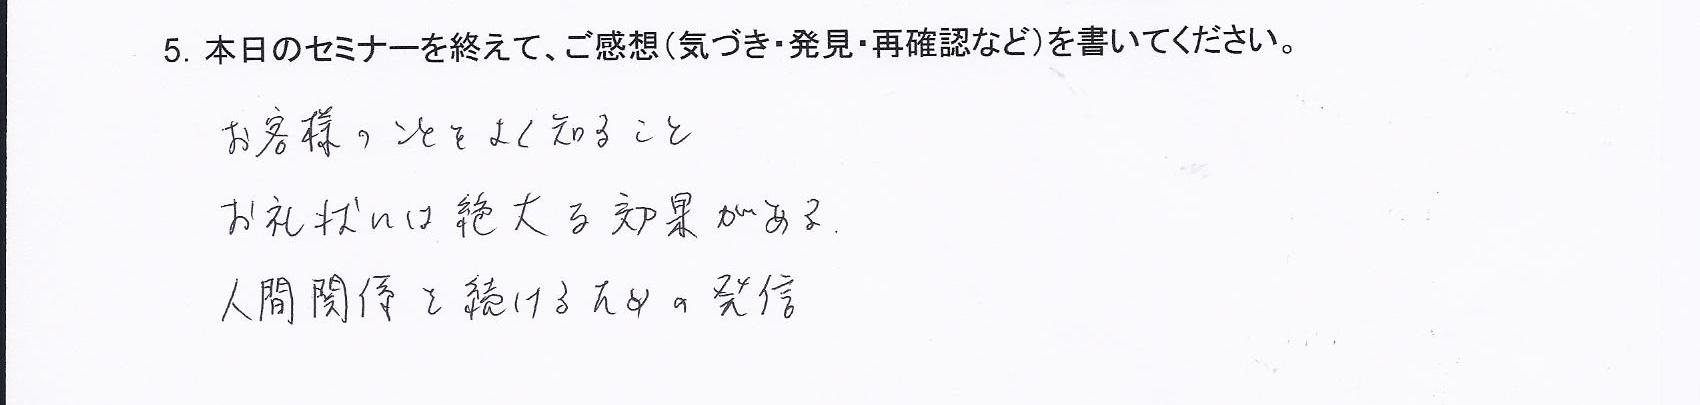 5. 本日のセミナーを終えて、ご感想(気づき・発見・再確認など)を書いてください。
お客様のことをよく知ること
お礼状には絶大なる効果がある.
人間関係を続けるための発信